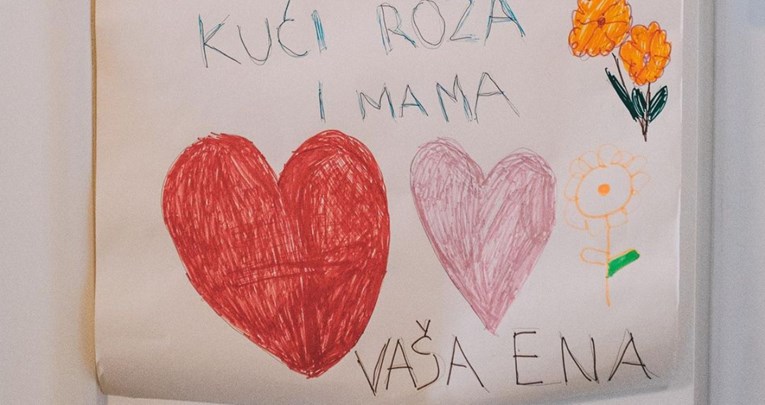 KUĆI ROZA
I MAMA
VAŠA ENA